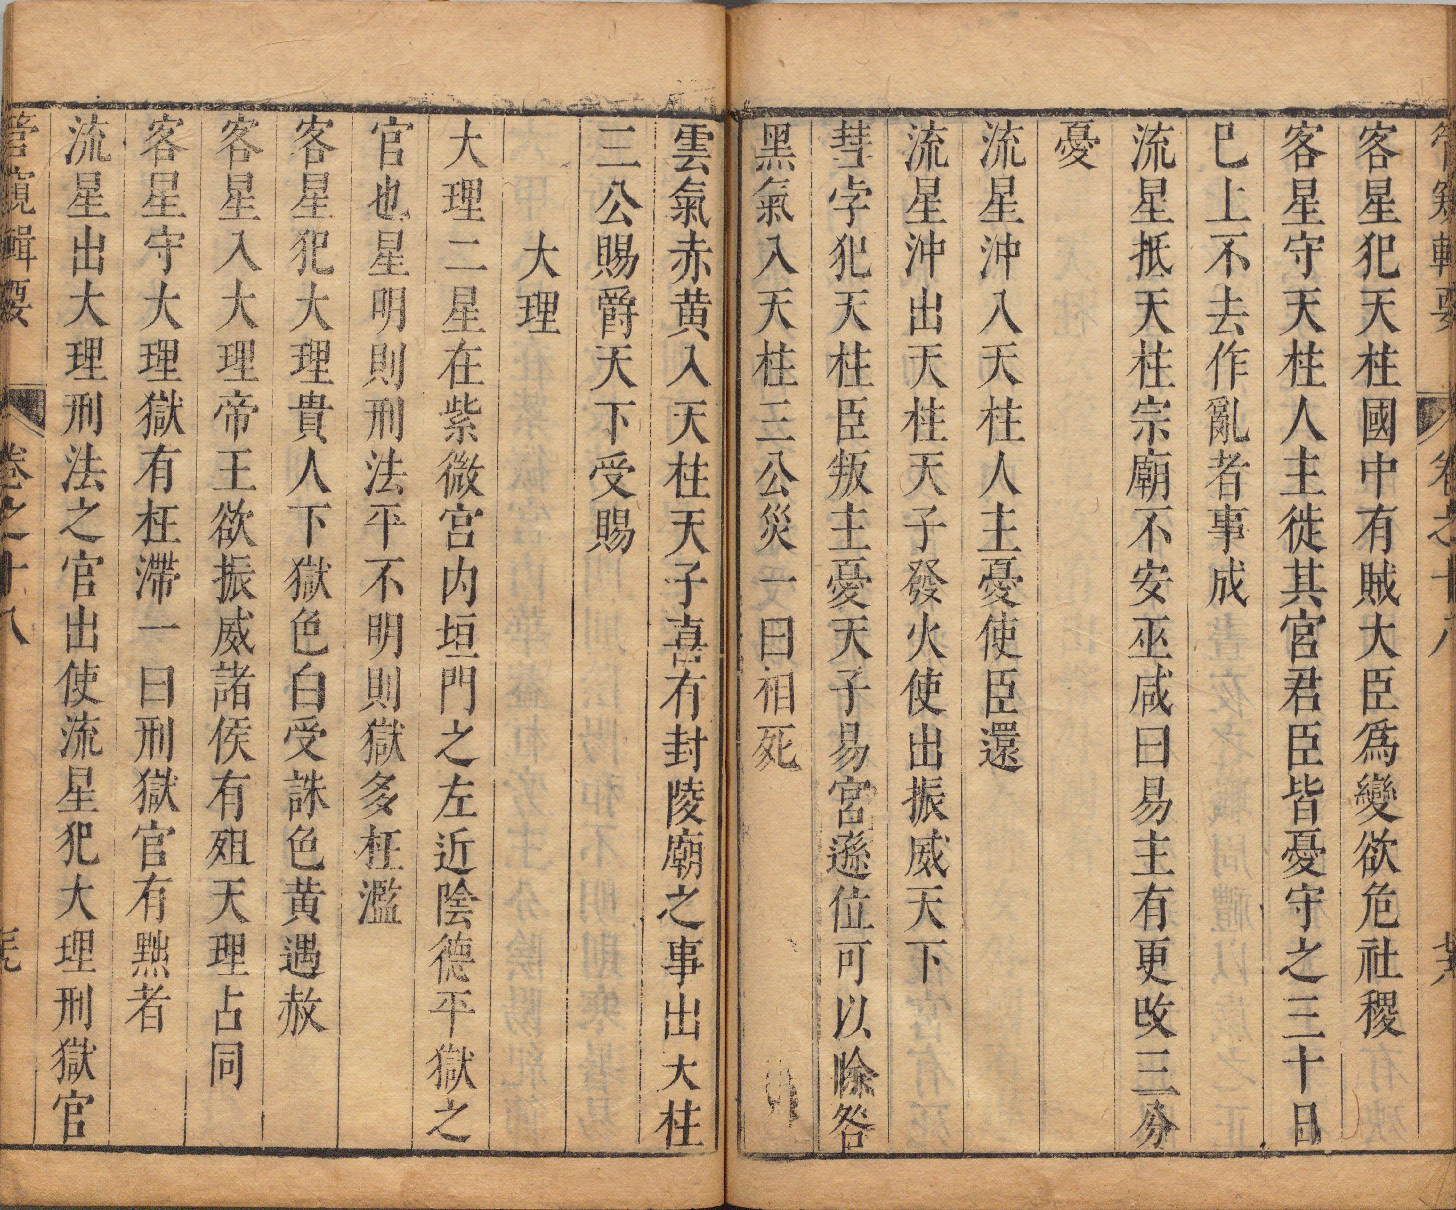 管窺輯要 卷之十八
客星犯天柱國中有賊大臣爲變欲危社稷
客星守天柱人主徙其宮君臣皆憂守之三十日
已上不去作亂者事成
流星抵天柱宗廟不安巫咸曰易主有更改三分
憂
流星沖入天柱人主憂使臣還
流星沖出天柱天子發火使出振威天下
彗孛犯天柱臣叛主憂天子易宮遜位可以除咎
黑氣入天柱三公災一曰相死
雲氣赤黃入天柱天子喜有封陵廟之事出大柱
三公賜爵天下受賜
大理
大理二星在紫微宮内垣門之左近陰德平獄之
官也星明則刑法平不明則獄多枉濫
客星犯大理貴人下獄色白受誅色黃遇赦
客星入大理帝王欲振威諸侯有殂天理占同
客星守大理獄有枉滯一曰刑獄官有黜者
流星出大理刑法之官出使流星犯大理刑獄官
管窺輯要 卷之十八